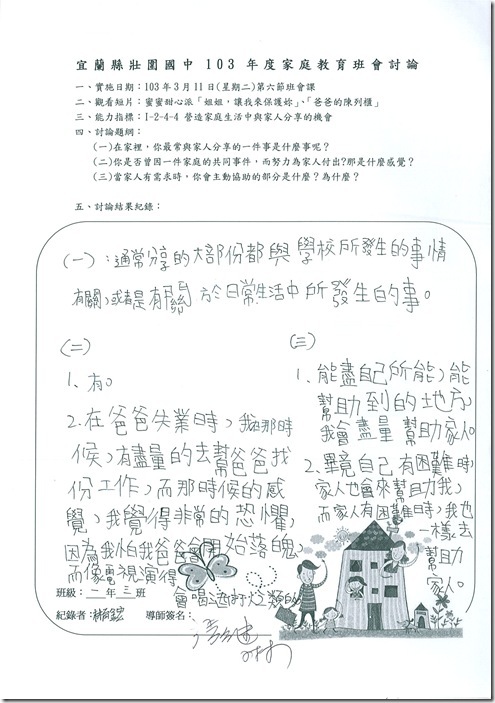 宜蘭縣壯圍國中 103 年度家庭教育班會討論
一、實施日期：103 年 3 月 11 日(星期二)第六節班會課
二、觀看短片：蜜蜜甜心派「姐姐，讓我來保護妳」、「爸爸的陳列櫃」
三、能力指標：1-2-4-4 營造家庭生活中與家人分享的機會
四、討論題綱：
(一)在家裡，你最常與家人分享的一件事是什麼事呢？
(二)你是否曾因一件家庭的共同事件，而努力為家人付出?那是什麼感覺？
(三)當家人有需求時，你會主動協助的部分是什麼？為什麼？
五、討論結果紀錄：
(一)：通常分享的大部份都與學校所發生的事情
有關，或者是有關於日常生活中所發生的事。
(二)
1、有。
2.在爸爸失業時，我那時
候，有盡量的去幫爸爸找
份工作，而那時候的感
覺，我覺得非常的恐懼，
因為我怕我爸爸會開始落魄，
而像電視演得
會喝酒打之類的
(三)
1、能盡自己所能，能
幫助到的地方，
我會盡量幫助家人。
2、畢竟自己有困難時，
家人也會來幫助我，
而家人有困難時，我也
一樣去
幫助
家人。
班級：一年三班
紀錄者：
導師簽名：